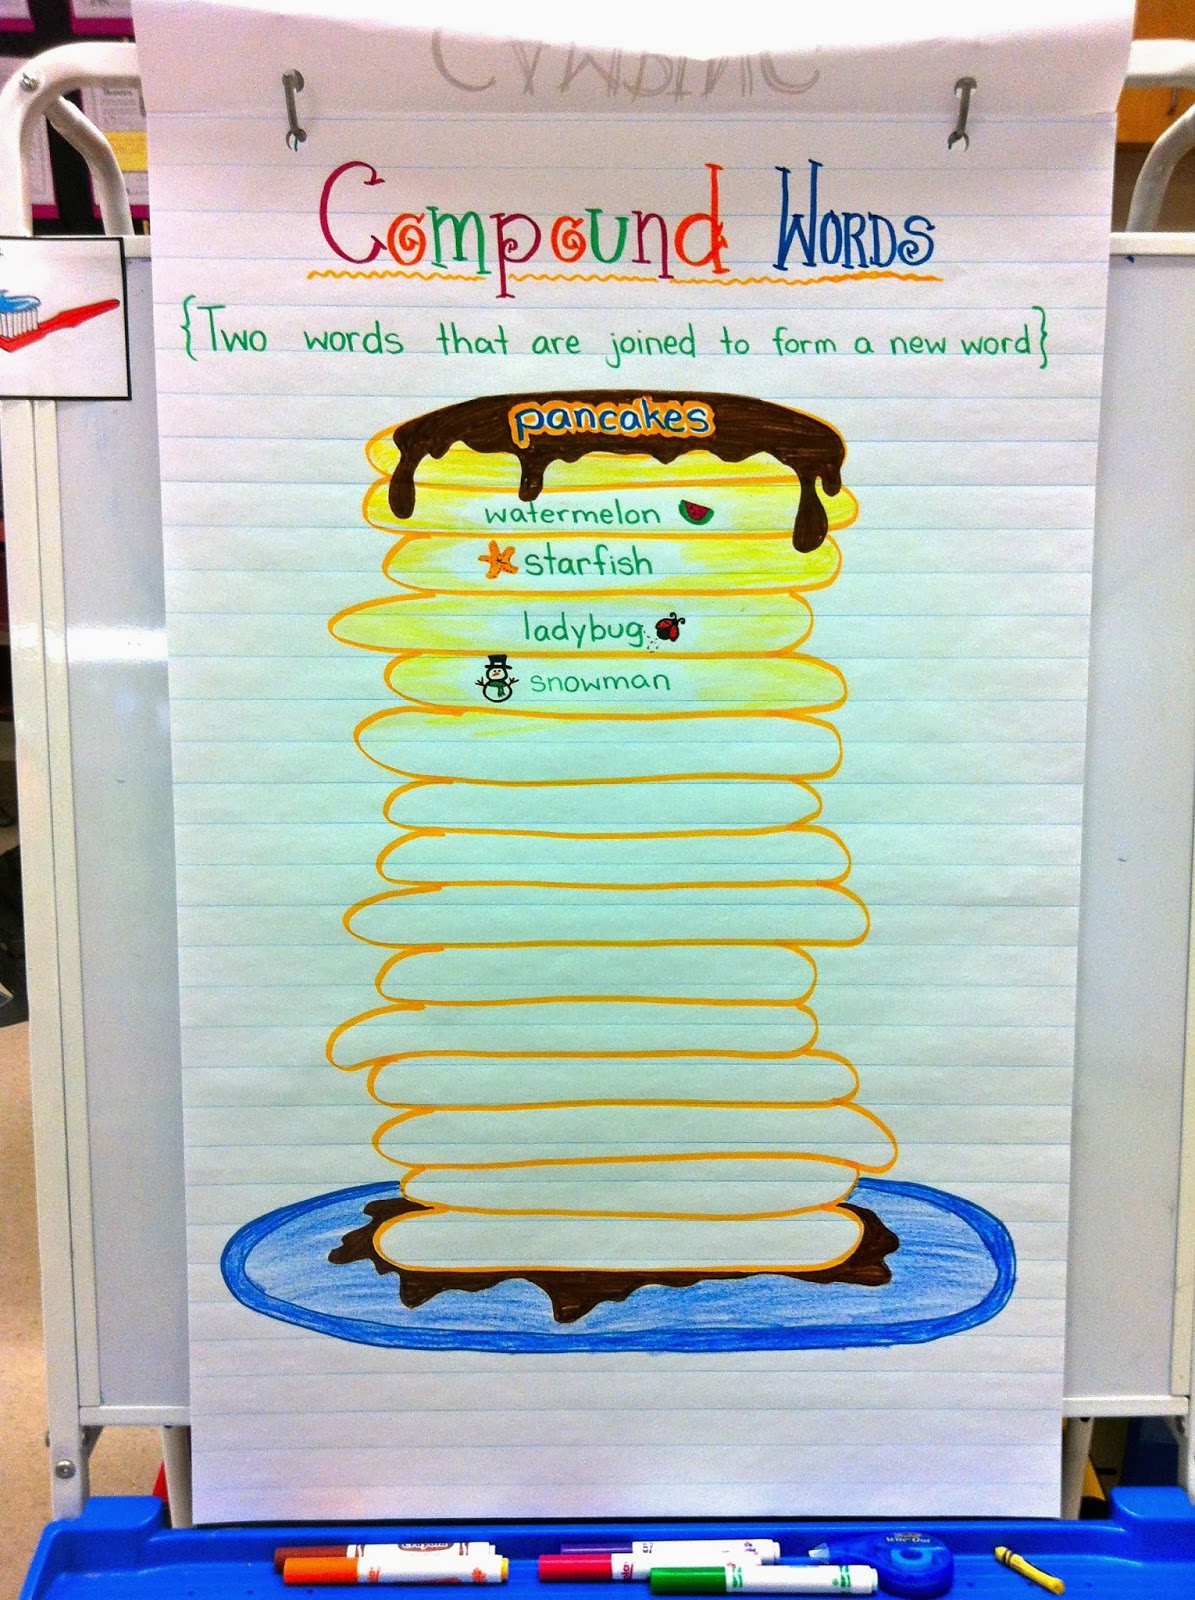 Compound Words
{Two words that are joined to form a new word}
pancakes
watermelon
starfish
ladybug
snowman
Crayola
Wite-Out